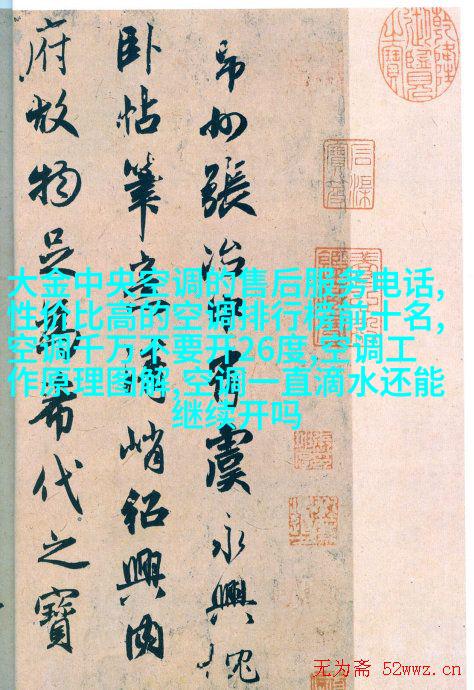 乾隆御覽之寶
州張冶有虞永興
卧帖筆意峭紹興内
府故物足爲希代之寶
大金中央空调的售后服务电话,
性价比高的空调排行榜前十名,
空调千万不要开26度,空调工
作原理图解,空调一直滴水还能
继续开吗
无为斋 52wwz.cn